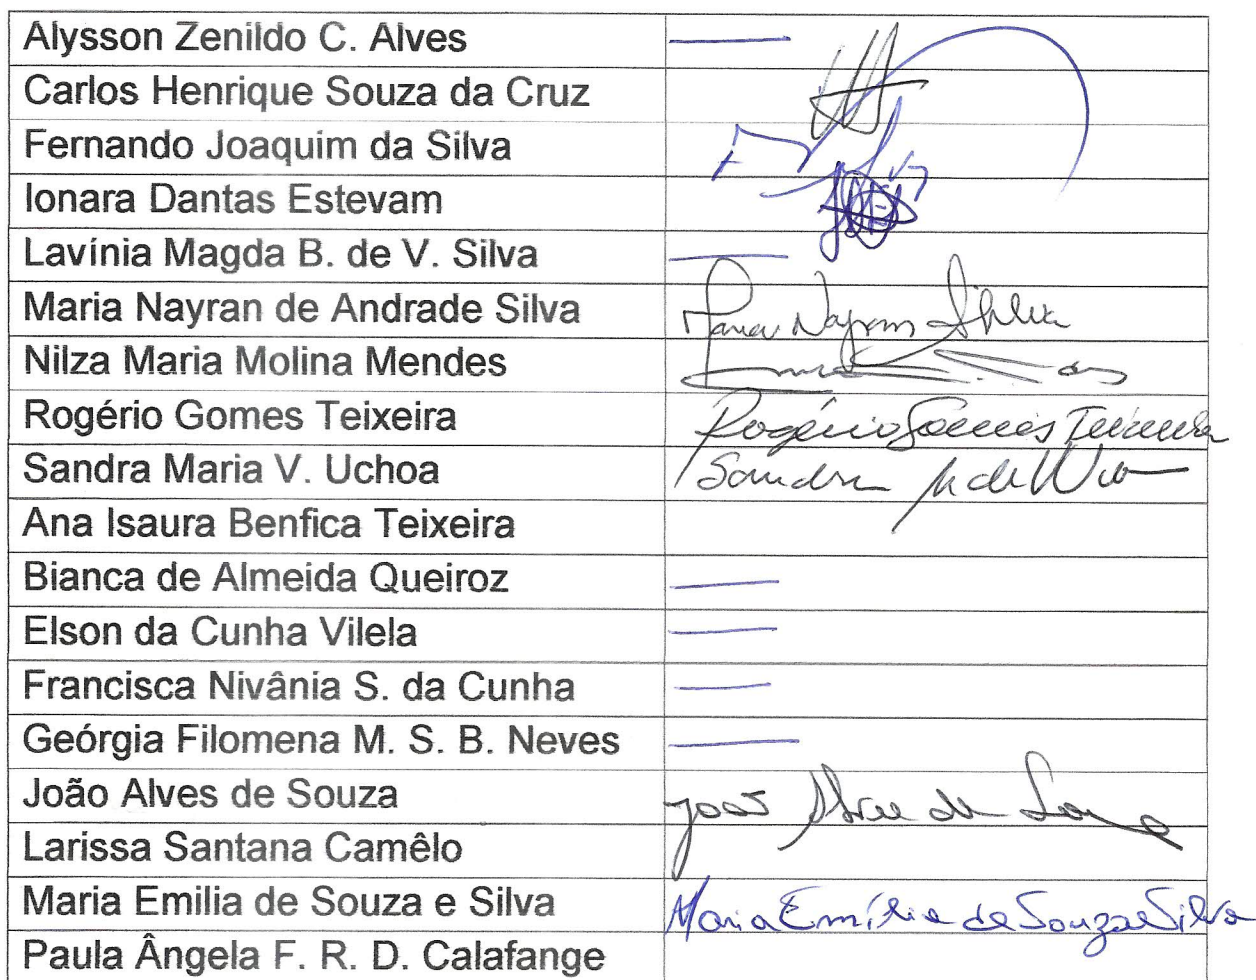 Alysson Zenildo C. Alves
Carlos Henrique Souza da Cruz
Fernando Joaquim da Silva
Ionara Dantas Estevam
Lavínia Magda B. de V. Silva
Maria Nayran de Andrade Silva Maria Nayran Silva
Nilza Maria Molina Mendes
Rogério Gomes Teixeira Rogério Gomes Teixeira
Sandra Maria V. Uchoa Sandra M de
Ana Isaura Benfica Teixeira
Bianca de Almeida Queiroz
Elson da Cunha Vilela
Francisca Nivânia S. da Cunha
Geórgia Filomena M. S. B. Neves
João Alves de Souza João Alves de Souza
Larissa Santana Camêlo
Maria Emilia de Souza e Silva Maria Emília de Souza e Silva
Paula Ângela F. R. D. Calafange